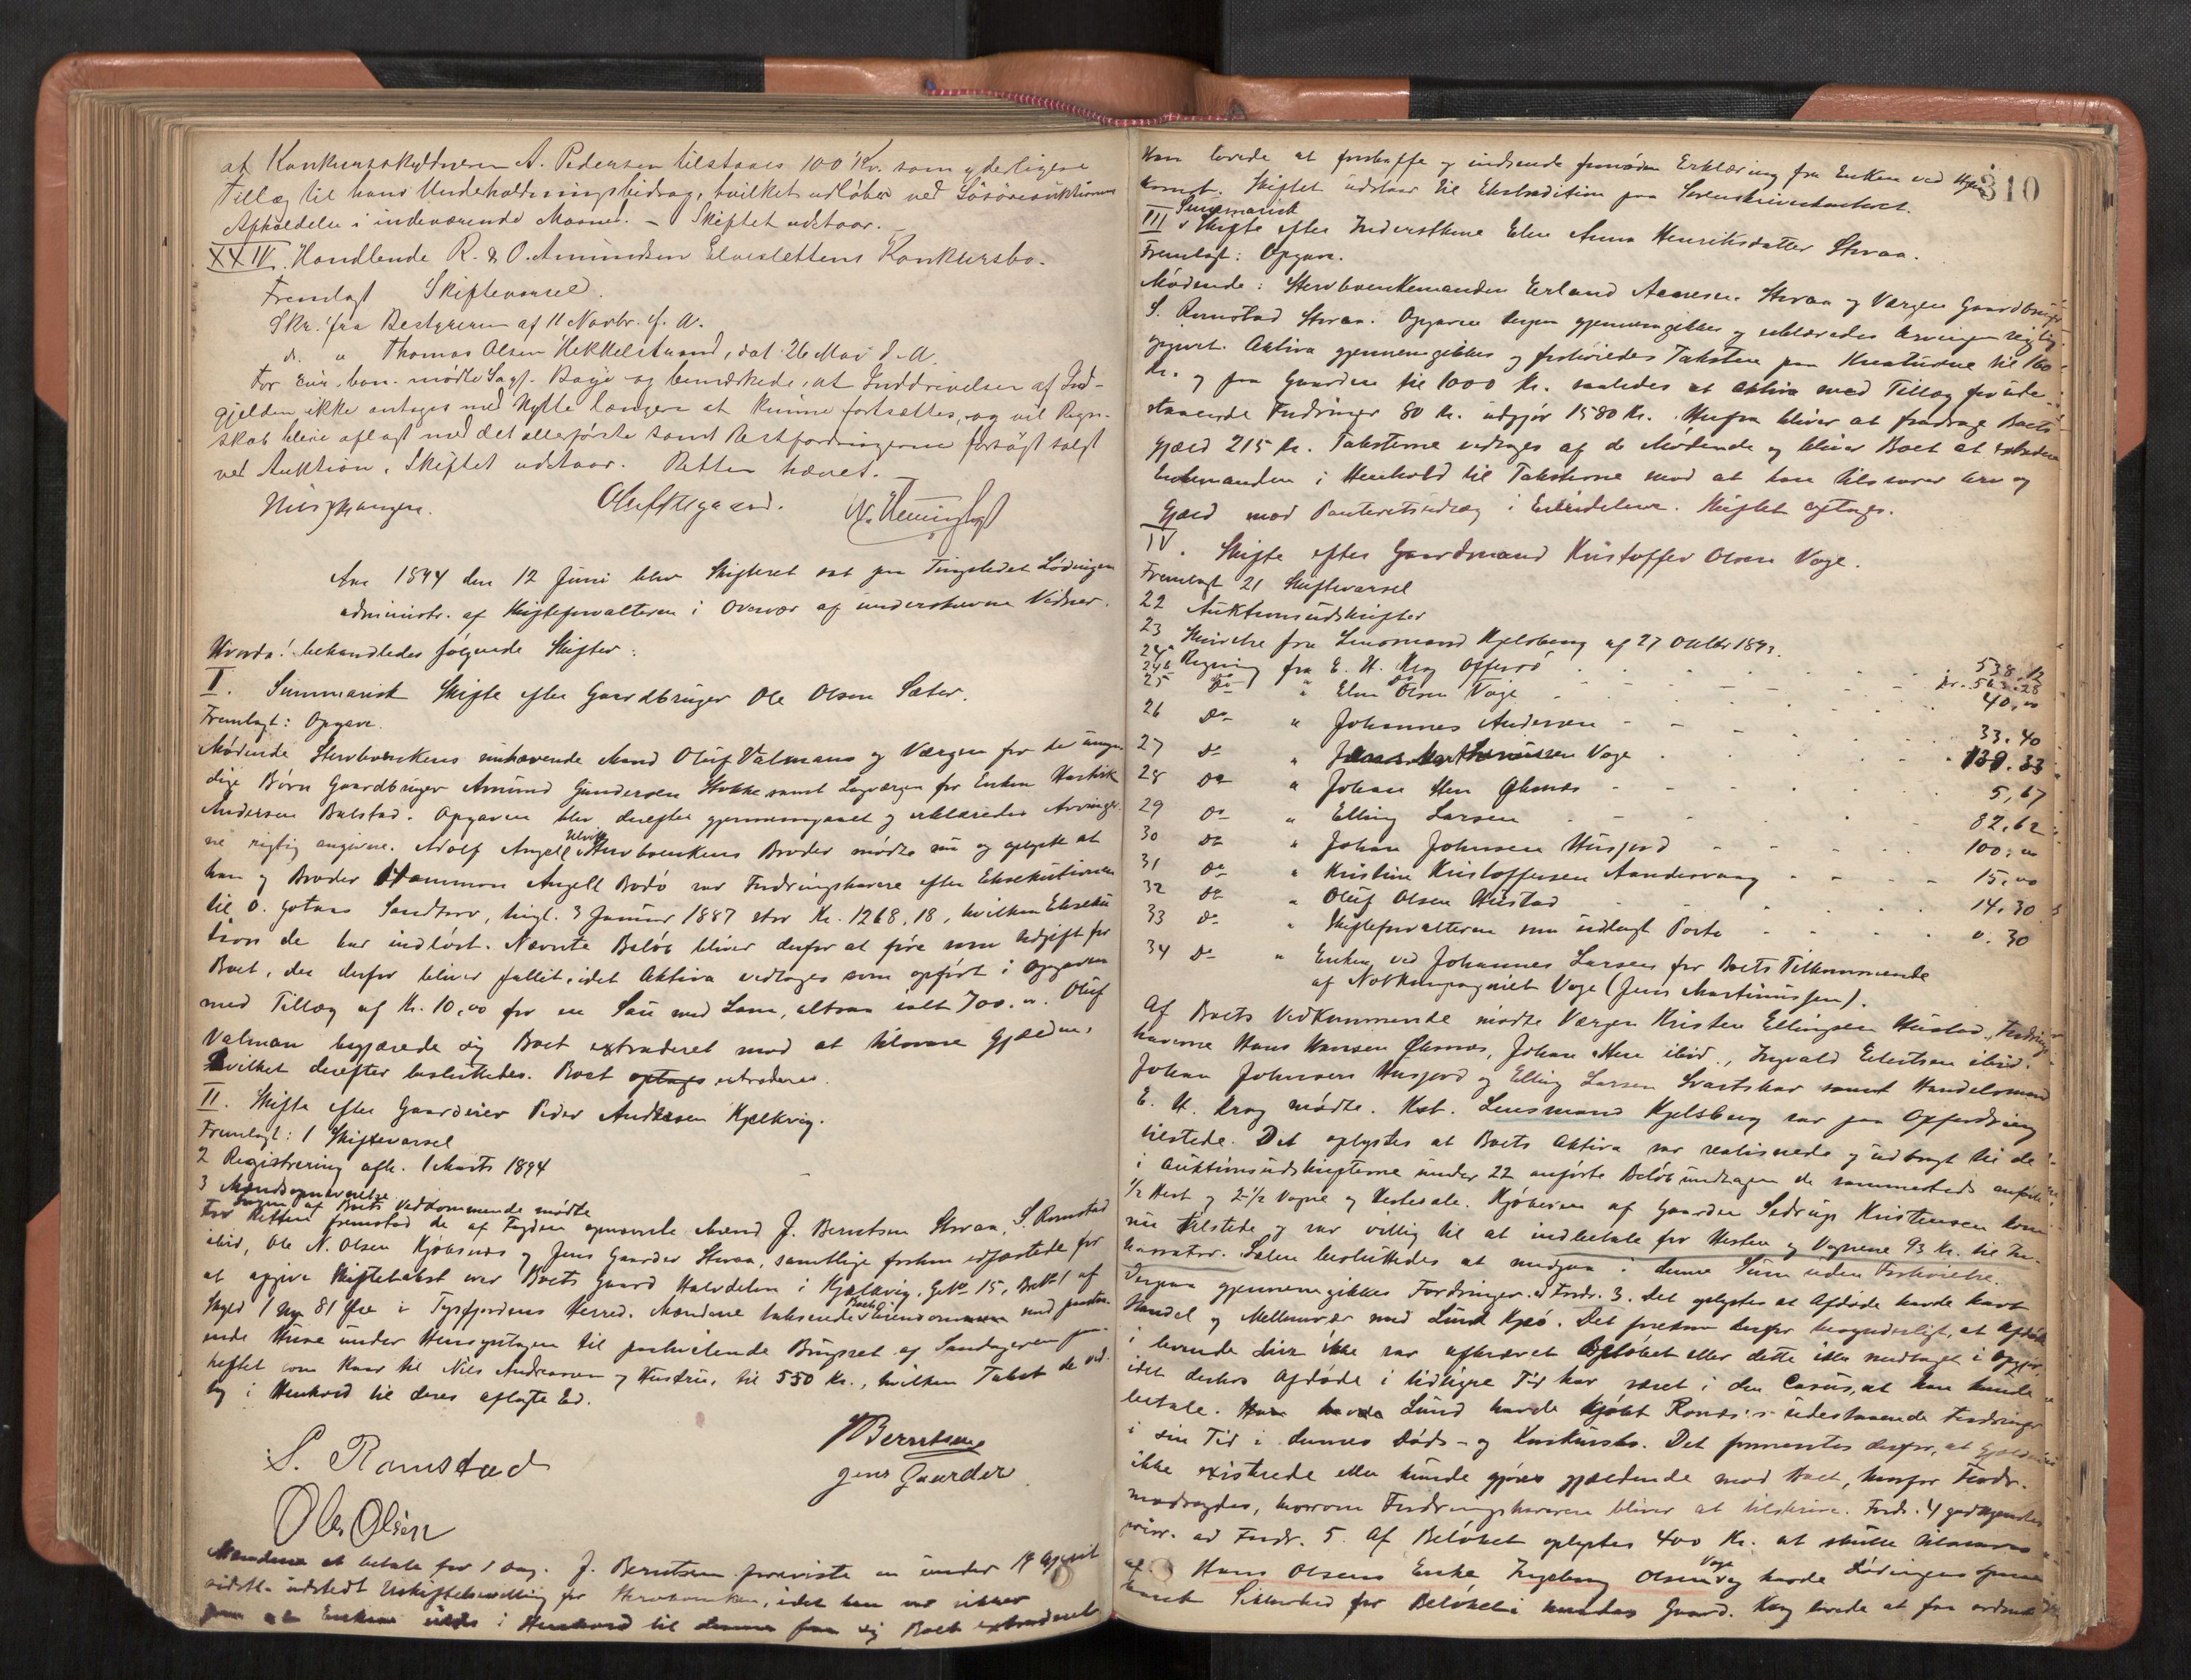 at Konkursskyldneren A. Pedersen tilstaaes 100 Kr. som yderligere
Tillæg til hans Underholdningsbidrag, hvilket udløber ved Løsøreauktionens
Afholdelse i indeværende Maaned. – Skiftet udstaar.
XXIV. Handlende R. & O. Amundsen Elveslettens Konkursbo.
Fremlagt Skiftevarsel.
Skr. fra Bestyreren af 11 Novbr. f. A.
do. " Thomas Olsen Hekkelstrand, dat. 26 Mai d. A.
For bon. mødte Sagf. Baye og bemærkede, at Inddrivelsen af Ind-
gjelden ikke antages med Nytte længere at kunne fortsættes, og vil Regn-
skab blive aflagt med det allerførste samt Restfordringerne forsøgt solgt
ved Auktion. Skiftet udstaar. Retten hævet.
Aar 1894 den 12 Juni blev Skifteret sat paa Tingstedet Lødingen
administr. af Skifteforvalteren i Overvær af underskrevne Vidner.
Hvorda! behandledes følgende Skifter:
I. Summarisk Skifte efter Gaardbruger Ole Olsen Sæter.
Fremlagt: Opgave.
Mødende Stervboenkens nuhavende Mand Oluf Valmans og Værgen for de umyn-
dige Børn Gaardbruger Amund Gundersen Stokke samt Lagværgen for Enken Hartvik
Andersen Balstad. Opgaven blev derefter gjennemgaaet og erklæredes Arvinger-
ne rigtig angivne. Adolf Angell Ulvik Stervboenkens Broder mødte nu og oplyste at
han og Broder Hammon Angell Bodø var Fordringshavere efter Eksekutionen
til O. Gotaas Sandtorv, tingl. 3 Januar 1887 stor Kr. 1268,18, hvilken Eksekü-
tion de har indløst. Nævnte Beløb bliver derfor at føre som Udgift for
Boet, der derfor bliver fallit, idet Aktiva vedtages som opført i Opgaven
med Tillæg af Kr. 10,00 for en Sau med Lam, altsaa ialt 700.00. Oluf
Valman begjærede sig Boet extraderet mod at tilsvare Gjælden,
hvilket derefter besluttedes. Boet optages extraderes.
II. Skifte efter Gaardeier Peder Andersen Kjelkvig.
Fremlagt: 1 Skiftevarsel
2 Registrering afh. 1 Marts 1894
3 Mændsopnævnelse
Ingen af Boets Vedkommende mødte
For Retten fremstod de af Fogden opnævnte Mænd J. Berntsen Storaa, S. Romstad
ibid, Ole N. Olsen Kjøbsnæs og Jens Gaarder Storaa, samtlige forhen edfæstede for
at opgive Skiftetakst over Boets Gaard Halvdelen i Kjelkvig, G. No 15, B. No 1 af
Skyld 1 Mk 81 Øre i Tysfjordens Herred. Mændene takserede Boets Eiendommen med paastaa-
ende Huse under Hensyntagen til paahvilende Brugsret af Sandageren paa-
heftet som Kaar til Nils Andreassen og Hustru, til 550 Kr., hvilken Takst de ved-
tog i Henhold til deres aflagte Ed.
S. Romstad
J Berntsen
Jens Gaarder
Ole Olsen
Mændene at betale for 1 Dag. J. Berntsen foreviste en under 19 April
sidstl. udstedt Uskiftebevilling for Stervboenken, idet han var sikker
paa at Enken i Henhold til denne faar sig Boet extraderet
310
Han lovede at fremskaffe og indsende fornøden Erklæring fra Enken ved
komst. Skiftet udstaar til Ekstradition paa Sorenskriverkontoret.
III Summarisk Skifte efter Inderstkone Elen Anna Henriksdatter Storaa.
Fremlagt: Opgave.
Mødende: Stervboenkemanden Erland Aanesen Storaa og Værgen Gaardbruger
S. Romstad Storaa. Opgaven derpaa gjennemgikkes og erklæredes Arvingen rigtig
opgivet. Aktiva gjennemgikkes og forhøiedes Taksten paa Kreaturene til 160
Kr. og paa Gaarden til 1000 Kr. saaledes at Aktiva med Tillæg for ude-
staaende Fordringer 80 Kr. udgjør 1580 Kr. Herfra bliver at fradrage Boets
Gjæld 215 Kr. Taksterne vedtages af de Mødende og bliver Boet at extradere
enkemanden i Henhold til Taksterne mod at han tilsvarer Arv og
Gjæld mod Panteretsudlæg i Eiendelene. Skiftet optages.
IV. Skifte efter Gaardmand Kristoffer Olsen Vage.
Fremlagt 21 Skiftevarsel
22 Auktionsudskrifter
23 Skrivelse fra Lensmand Kjelsberg af 27 Oktbr 1893.
24a Regning fra E. H. Krog Offersø . . . . 538.12
24b kr. 563.28
25 Do " Elen Olsen Vage . . . . 40,00
26 Do " Johannes Andersen . . . . 33.40
27 Do " Jens Martinussen Vage . . . . 139.33
28 Do " Johan Hem Øksnæs . . . . 5,67
29 Do " Elling Larsen . . . . 82,62
30 Do " Johan Johnsen Husjord . . . . 100,00
31 Do " Kristine Kristoffersen Aandervaag . . . . 15,00
32 Do " Oluf Olsen Hustad . . . . 14.30
33 Do " Skifteforvalteren som udlagt Porto . . . . 0.30
34 Do " Enken ved Johannes Larsen for Boets Tilkommende
af Notkompagniet Vage (Jens Martinussen).
Af Boets Vedkommende mødte Værgen Kristen Ellingsen Hustad, Fordrings-
haverne Hans Hansen Øksnæs, Johan Hem ibid., Ingvald Edvartsen ibid.
Johan Johnsen Husjord og Elling Larsen Svartskar samt Handelsmand
E. H. Krog mødte. Kst. Lensmand Kjelsberg var paa Opfordring
tilstede. Det oplystes at Boets Aktiva var realiserede og udbragt til de
i Auktionsudskrifterne under 22 anførte Beløb undtagen de sammesteds anførte
1/2 Hest og 2 1/2 Vogne og Hestesale. Kjøberen af Gaarden Sedrup Kristensen kom
nu tilstede og var villig til at indbetale for Hesten og Vognene 93 Kr. til In-
kassator. Salen besluttedes at medgaa i denne Sum uden Forhøielse.
Derpaa gjennemgikkes Fordringer. Ad Fordr. 3. Det oplystes at Afdøde havde havt
Handel og Mellemvær med Lund Kjeø. Det forekom derfor besynderligt, at Afdøde
i levende Live ikke var afkrævet Beløbet eller dette ikke medtaget i Opgjør,
idet desuden Afdøde i tidligere Tid har været i den Casus, at han kunde
betale. Han havde Lund havde kjøbt Rønæs's udestaaende Fordringer
i sin Tid i dennes Døds- og Konkursbo. Det formentes derfor, at Gjælden
ikke existerede eller kunde gjøres gjældende mod Boet, hvorfor Fordr.
modsagdes, hvorom Fordringshaveren bliver at tilskrive. Fordr. 4 godkjendtes
prior. ad Fordr. 5. Af Beløbet oplystes 400 Kr. at skulle tilsvares
af Hans Olsens Enke Ingeborg Olsen Vage og havde Lødingens Spare
bank Sikkerhed for Beløbet i hendes Gaard. Krog lovede at faa ordnet